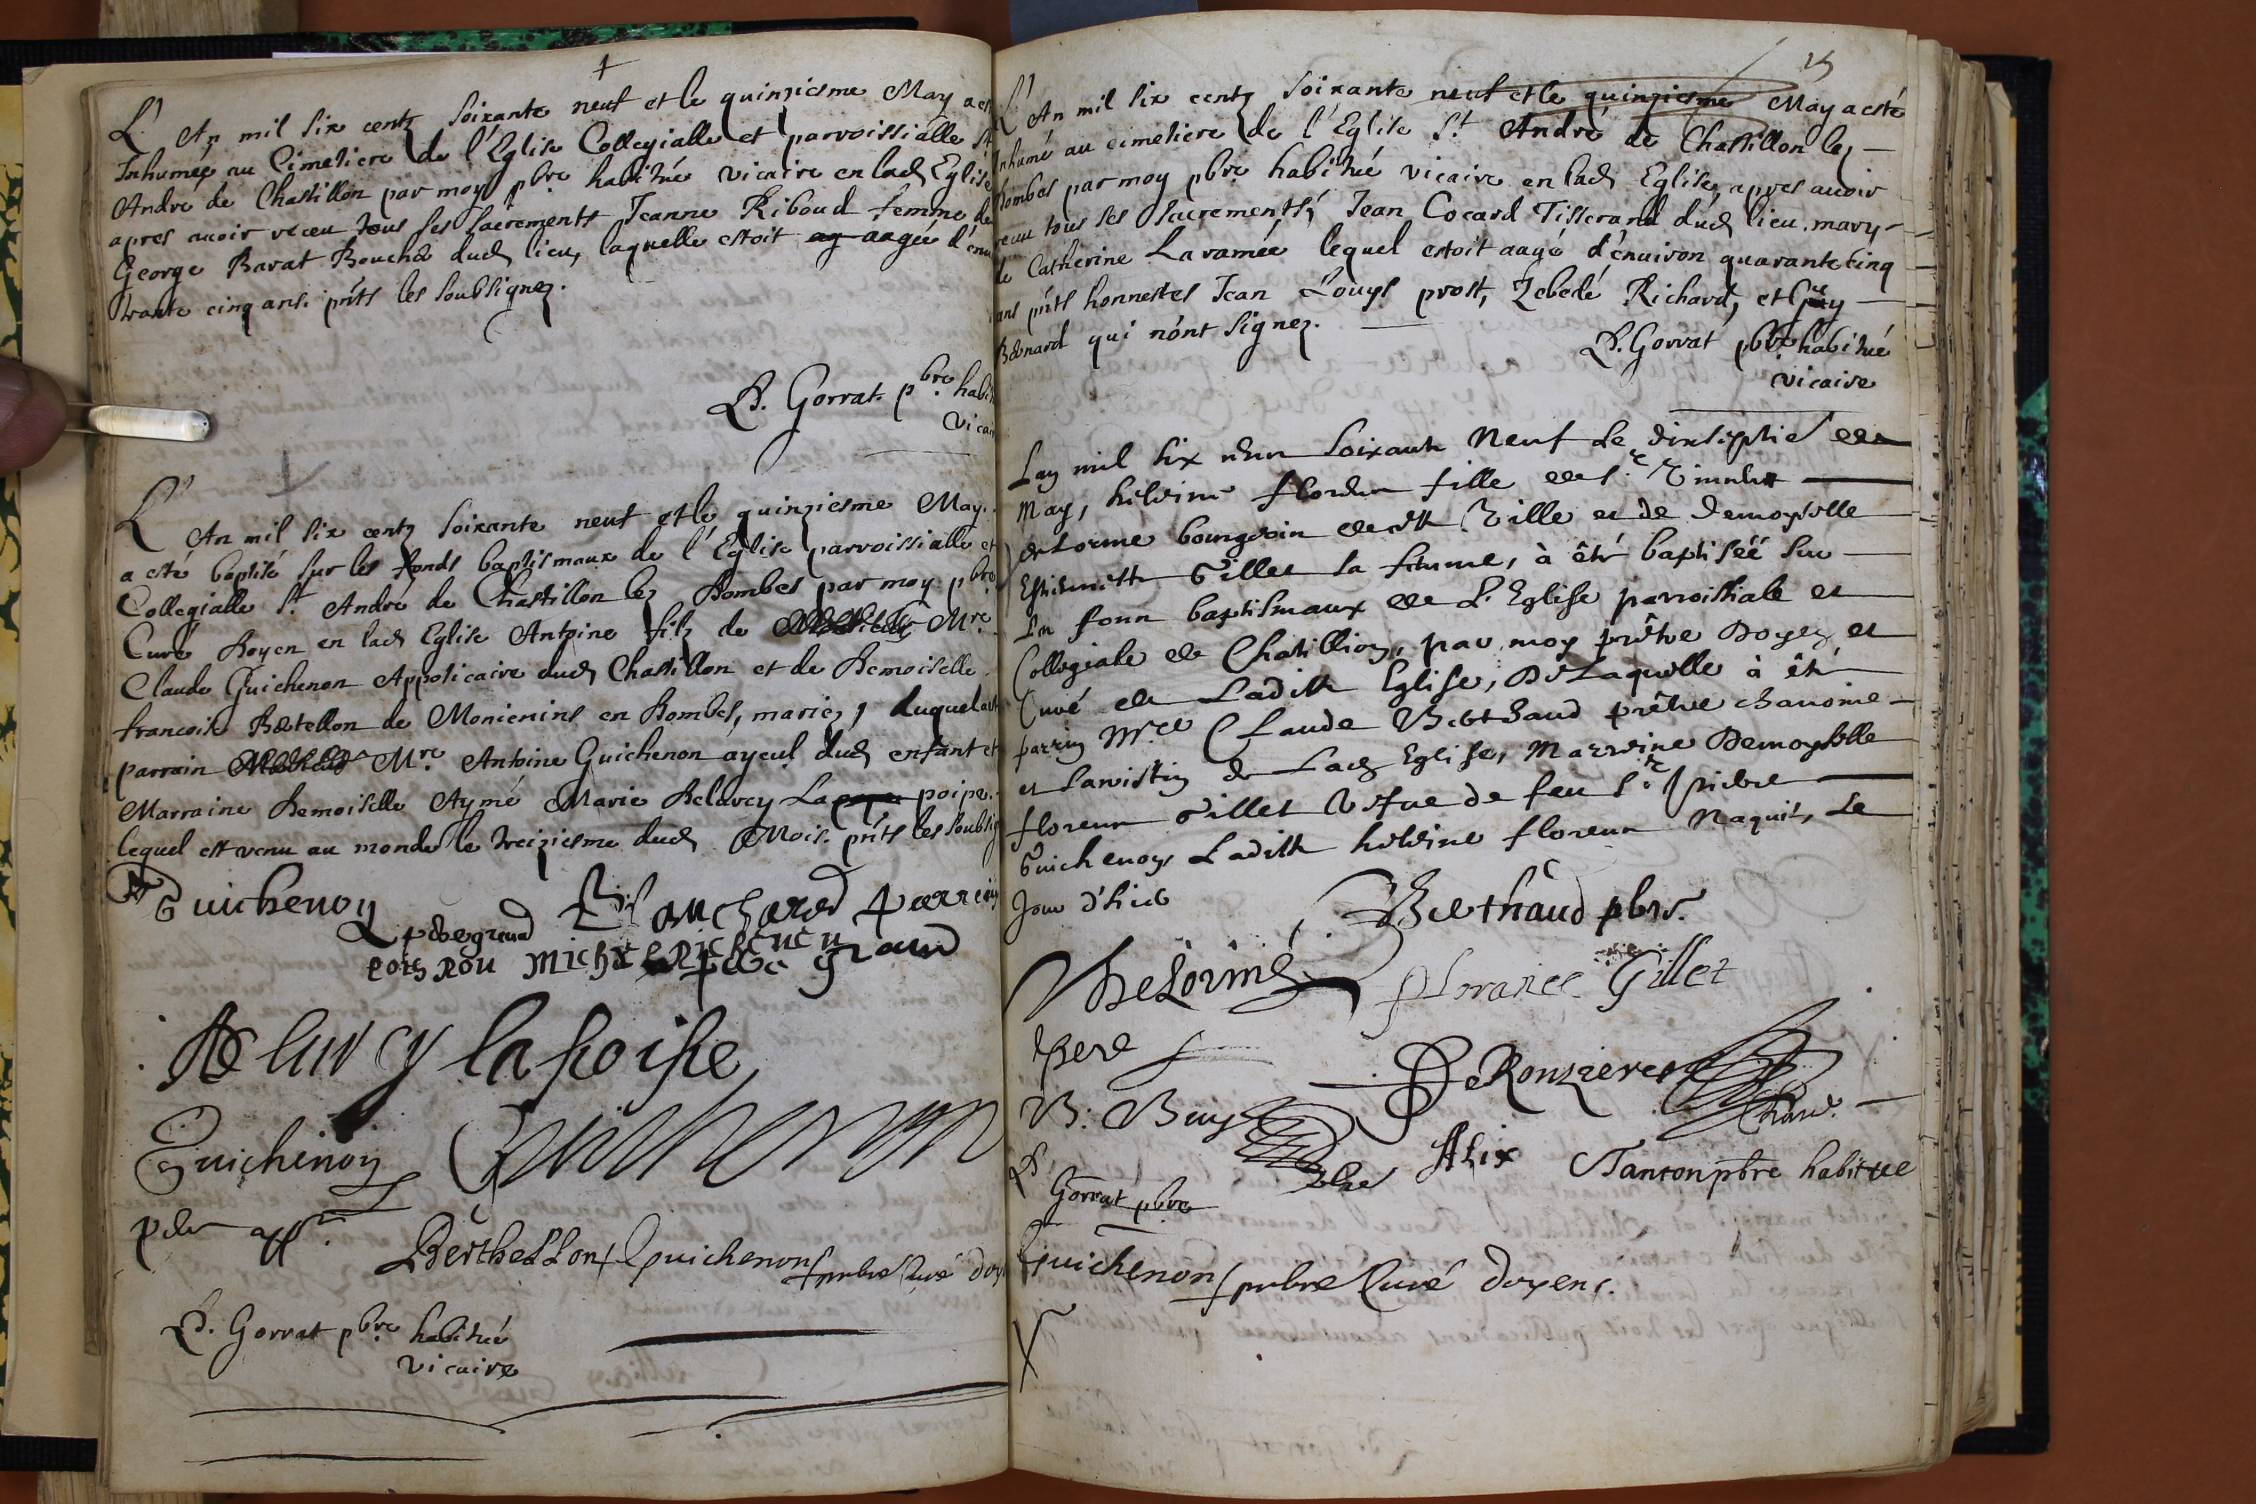 L'An mil six centz soixante neuf et le quinziesme May a est
Inhumée au Cimetiere de l'Eglise Collegialle et parroissialle St
André de Chastillon par moy pbre habitué vicaire en lad Eglise
apres avoir receu tous ses sacrements Jeanne Riboud femme de
George Barat Bouchér dud lieu, laquelle estoit aagée d'énui
trante cinq ans. pñts les soubsignez.
B. Gorrat pbre habit
vicai
L'An mil six centz soixante neuf et le quinziesme May.
a esté baptisé sur les fonds baptismaux de l'Eglise parroissialle et
Collegialle St André de Chastillon lez Dombes par moy pbre
Curé Doyen en lad Eglise Antoine filz de Mre
Claude Guichenon Appoticaire dud Chastillon et de Demoiselle
francoise Bertellon de Monienins en Dombes, mariez, duquel a est
parrain Mre Antoine Guichenon ayeul dud enfant et
Marraine Demoiselle Aymé Marie Delavcy La poipe.
lequel est venu au monde le treiziesme dud Mois. pñts les soubsig
Guichenon
Blanchard parrein
peregrand
michel pere grand
De lurcy la poipe
Guichenon Guichenon
pere
Berthellon Guichenon pnbre Curé doy
B. Gorrat pbre habitué
vicaire
15
L'An mil six centz soixante neuf et le quinziesme May a esté
Inhumé au cimetiere de l'Eglise St André de Chastillon lez
Dombes par moy pbre habitué vicaire en lad Eglise, apres avoir
receu tous ses sacrements, Jean Cocard Tisserand dud lieu, mary
de Catherine Laramée lequel estoit aagé d'énuiron quarante cinq
ans pñts honnestes Jean Louys prost, Zebedé Richard, et Guy
Bernard qui n'ont signez.
B. Gorrat pbre habitué
vicaire
Lan mil six cenn soixante Neuf Le dixseptie de
May, florence fille de sr
delorme bourgeois de ditte Ville et de Demoyselle
Gillet sa femme, à été baptiséé sur
Les fonn baptismaux de L'Eglise parroissiale et
Collegiale de Chatillion, par moy prêtre Doyen et
Curé de Laditte Eglise, De Laquelle à êté
parrin Mre Claude Berthaud prêtre chanoine
et sacristin de Lad Eglise, Marreine Demoyselle
florence Gillet Vefue de feu Sr pierre
Guichenon, Laditte florence Naquit, Le
Jour d'hier
Berthaud pbre.
DeLorme
pere
florance Gillet
DeRonzieres
chane.
B: Buy
pbre
Alix Tanton pbre habitue
B Gorrat pbre
Guichenon pnbre Curé doyen.